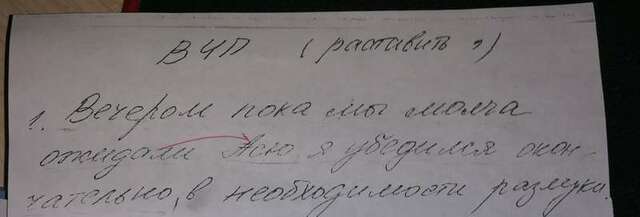 ВЧП (раставить ,)
1. Вечером пока мы молча
ожидали Асю я убедился окон-
чательно, в необходимости разлуки.